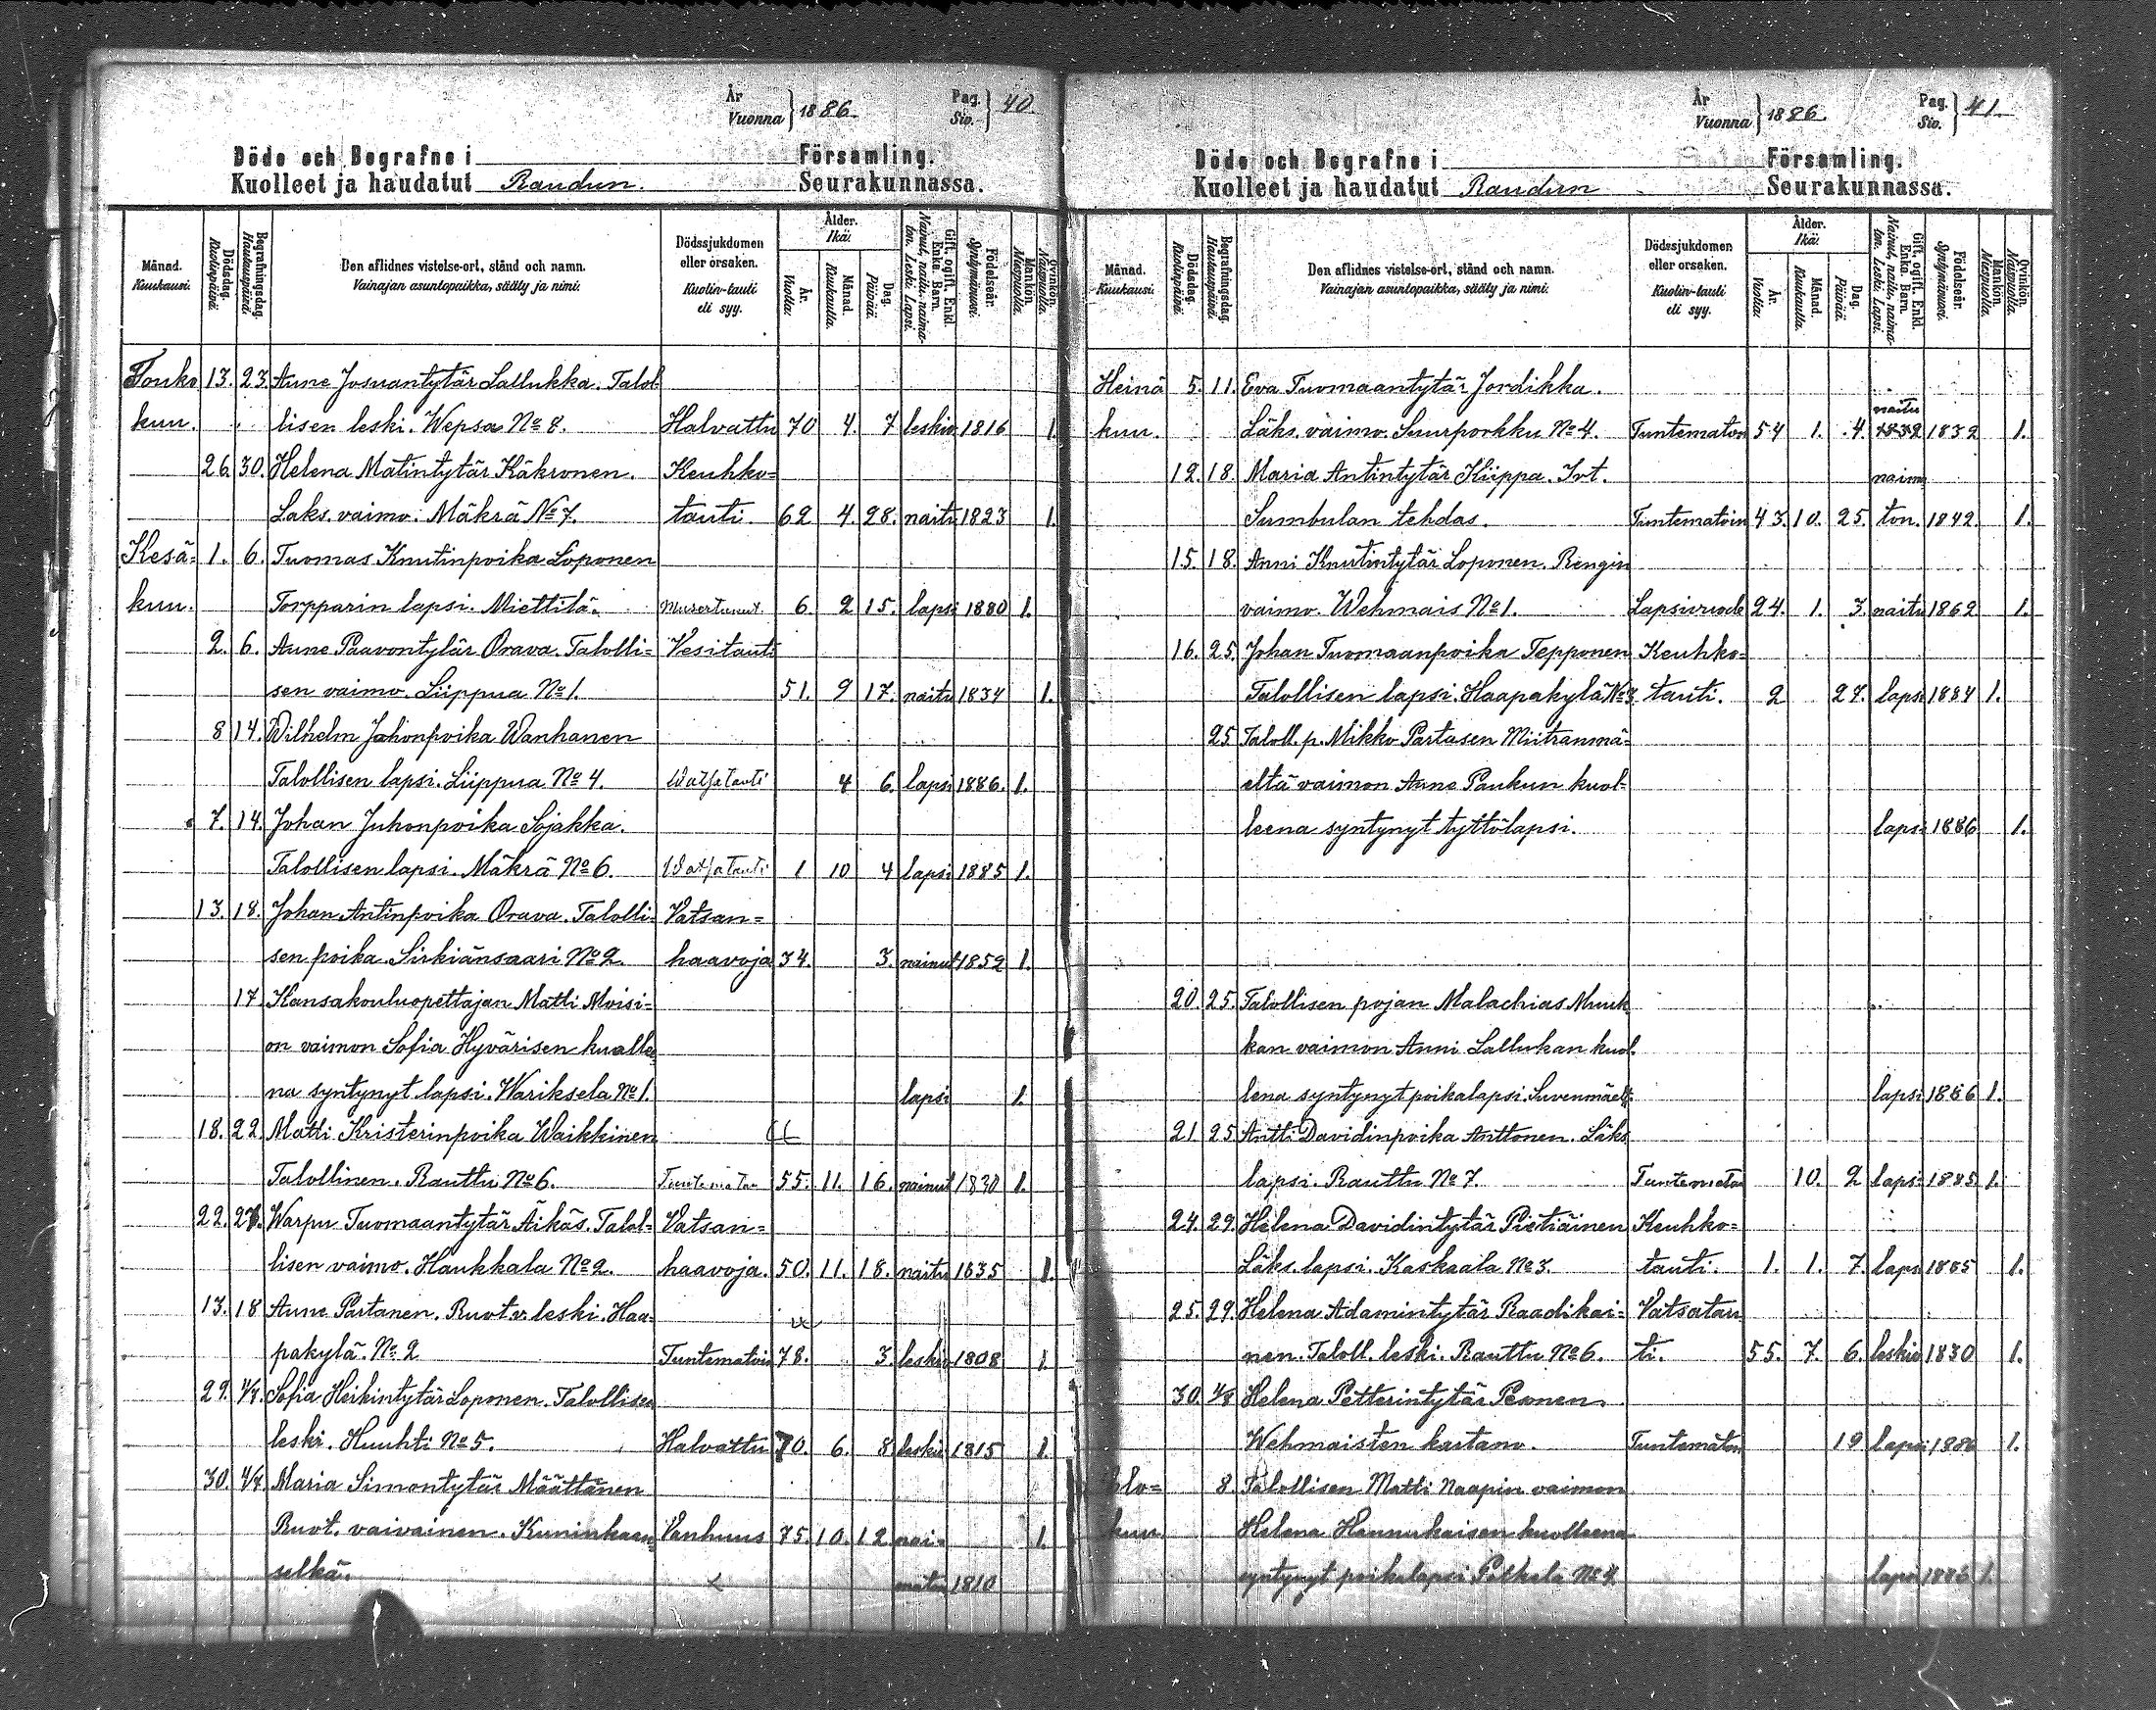 År
Vuonna } 1886.
Pag.
Siv. } 40.
Döde och Begrafne i Församling.
Kuolleet ja haudatut Raudun. Seurakunnassa.
Månad. Kuukausi.
Dödsdag. Kuolinpäivä.
Begrafningsdag. Hautauspäivä.
Den aflidnes vistelse-ort, stånd och namn.
Vainajan asuntopaikka, sääty ja nimi.
Dödssjukdomen eller orsaken.
Kuolin-tauti eli syy.
Ålder. Ikä:
År. Vuotta:
Månad. Kuukautta.
Dag. Päivää.
Gift, ogift. Enkl. Enka. Barn.
Nainut, naitu, naimaton. Leski. Lapsi.
Födelseår. Syntymävuosi.
Mankön. Miespuolia.
Qvinkön. Naispuolia.
Touko 13. 23. Anne Josuantytär Lallukka. Talol
kuu. lisen leski. Wepsa No 8. Halvattu 70 4. 7 leskiv. 1816 1.
26. 30. Helena Matintytär Käkronen. Keuhko=
Läks. vaimo. Mäkrä No 7. tauti. 62 4. 28. naitu 1823 1.
Kesä= 1. 6. Tuomas Knutinpoika Loponen
kuu. Torpparin lapsi. Miettilä. Musertunut 6. 2 15. lapsi 1880 1.
2. 6. Anne Paavontytär Orava. Talolli= Vesitauti
sen vaimo. Liippua No 1. 51. 9 17. naitu 1834 1.
8 14. Wilhelm Juhonpoika Wanhanen
Talollisen lapsi. Liippua No 4. Watsatauti 4 6. lapsi 1886. 1.
7. 14. Johan Juhonpoika Sojakka.
Talollisen lapsi. Mäkrä No 6. Watsatauti 1 10 4 lapsi 1885 1.
13. 18. Johan Antinpoika Orava. Talolli= Vatsan=
sen poika. Sirkiänsaari No 2. haavoja 34. 3. nainut 1852 1.
17 Kansakouluopettajan Matti Moisi=
on vaimon Sofia Hyvärisen kuolle
na syntynyt lapsi. Wariksela No 1. lapsi 1.
18. 22 Matti Kristerinpoika Waikkinen
Talollinen. Rauttu No 6. Tuntematon 55. 11. 16. nainut 1830 1.
22. Warpu Tuomaantytär Äikäs. Talol= Vatsan=
lisen vaimo. Haukkala No 2. haavoja. 50. 11. 18. naitu 1835 1.
13. 18 Anne Partanen. Ruot.v. leski. Haa=
pakylä. No 2 Tuntematoin 78. 3. leskiv 1808 1.
29. 4/7. Sofia Heikintytär Loponen. Talollisen
leski. Huuhti No 5. Halvattu 70. 6. 8 leskiv 1815 1.
30. 4/7 Maria Simontytär Määttänen
Ruot. vaivainen. Kuninkaan= Vanhuus 75. 10. 12 nai= 1.
selkä. maton 1810
År
Vuonna } 1886.
Pag.
Siv. } 41.
Döde och Begrafne i Församling.
Kuolleet ja haudatut Raudun Seurakunnassa.
Månad. Kuukausi.
Dödsdag. Kuolinpäivä.
Begrafningsdag. Hautauspäivä.
Den aflidnes vistelse-ort, stånd och namn.
Vainajan asuntopaikka, sääty ja nimi.
Dödssjukdomen eller orsaken.
Kuolin-tauti eli syy.
Ålder. Ikä:
År. Vuotta:
Månad. Kuukautta.
Dag. Päivää.
Gift, ogift. Enkl. Enka. Barn.
Nainut, naitu, naimaton. Leski. Lapsi.
Födelseår. Syntymävuosi.
Mankön. Miespuolia.
Qvinkön. Naispuolia.
Heinä 5. 11. Eva Tuomaantytär Jordikka.
kuu. Läks. vaimo. Suurporkku No 4. Tuntematon 54 1. 4. naitu 1832 1832 1.
12. 18. Maria Antintytär Kiippa. Irt. naima
Sumbulan tehdas. Tuntematoin 43. 10. 25. ton. 1842. 1.
15. 18. Anni Knutintytär Loponen. Rengin
vaimo. Wehmais No 1. Lapsivuode 24. 1. 3. naitu 1862 1.
16. 25. Johan Tuomaanpoika Tepponen Keuhko=
Talollisen lapsi. Haapakylä No 3 tauti. 2 27. lapsi 1884 1.
25 Taloll. p. Mikko Partasen Miitranmä=
eltä vaimon Anne Paukun kuol=
leena syntynyt tyttölapsi. lapsi 1886 1.
20. 25. Talollisen pojan Malachias Muuk
kan vaimon Anni Lallukan kuol.
lena syntynyt poikalapsi. Suvenmäelt. lapsi 1886 1.
21 25 Antti Davidinpoika Anttonen. Läks
lapsi. Rauttu No 7. Tuntematon 10. 2 lapsi 1885 1.
24. 29. Helena Davidintytär Pietiäinen Keuhko=
Läks. lapsi. Kaskaala No 3. tauti. 1. 1. 7. lapsi 1885 1.
25. 29. Helena Adamintytär Raadikai= Vatsatau
nen. Taloll. leski. Rauttu No 6. ti. 55. 7. 6. leskiv 1830 1.
30. 1/8 Helena Petterintytär Peonen.
Wehmaisten kartano. Tuntematon 19 lapsi 1886 1.
Elo= 8. Talollisen Matti Naapin vaimon
kuu. Helena Hannukaisen kuolleena
syntynyt poikalapsi Potkela No 4. lapsi 1886 1.